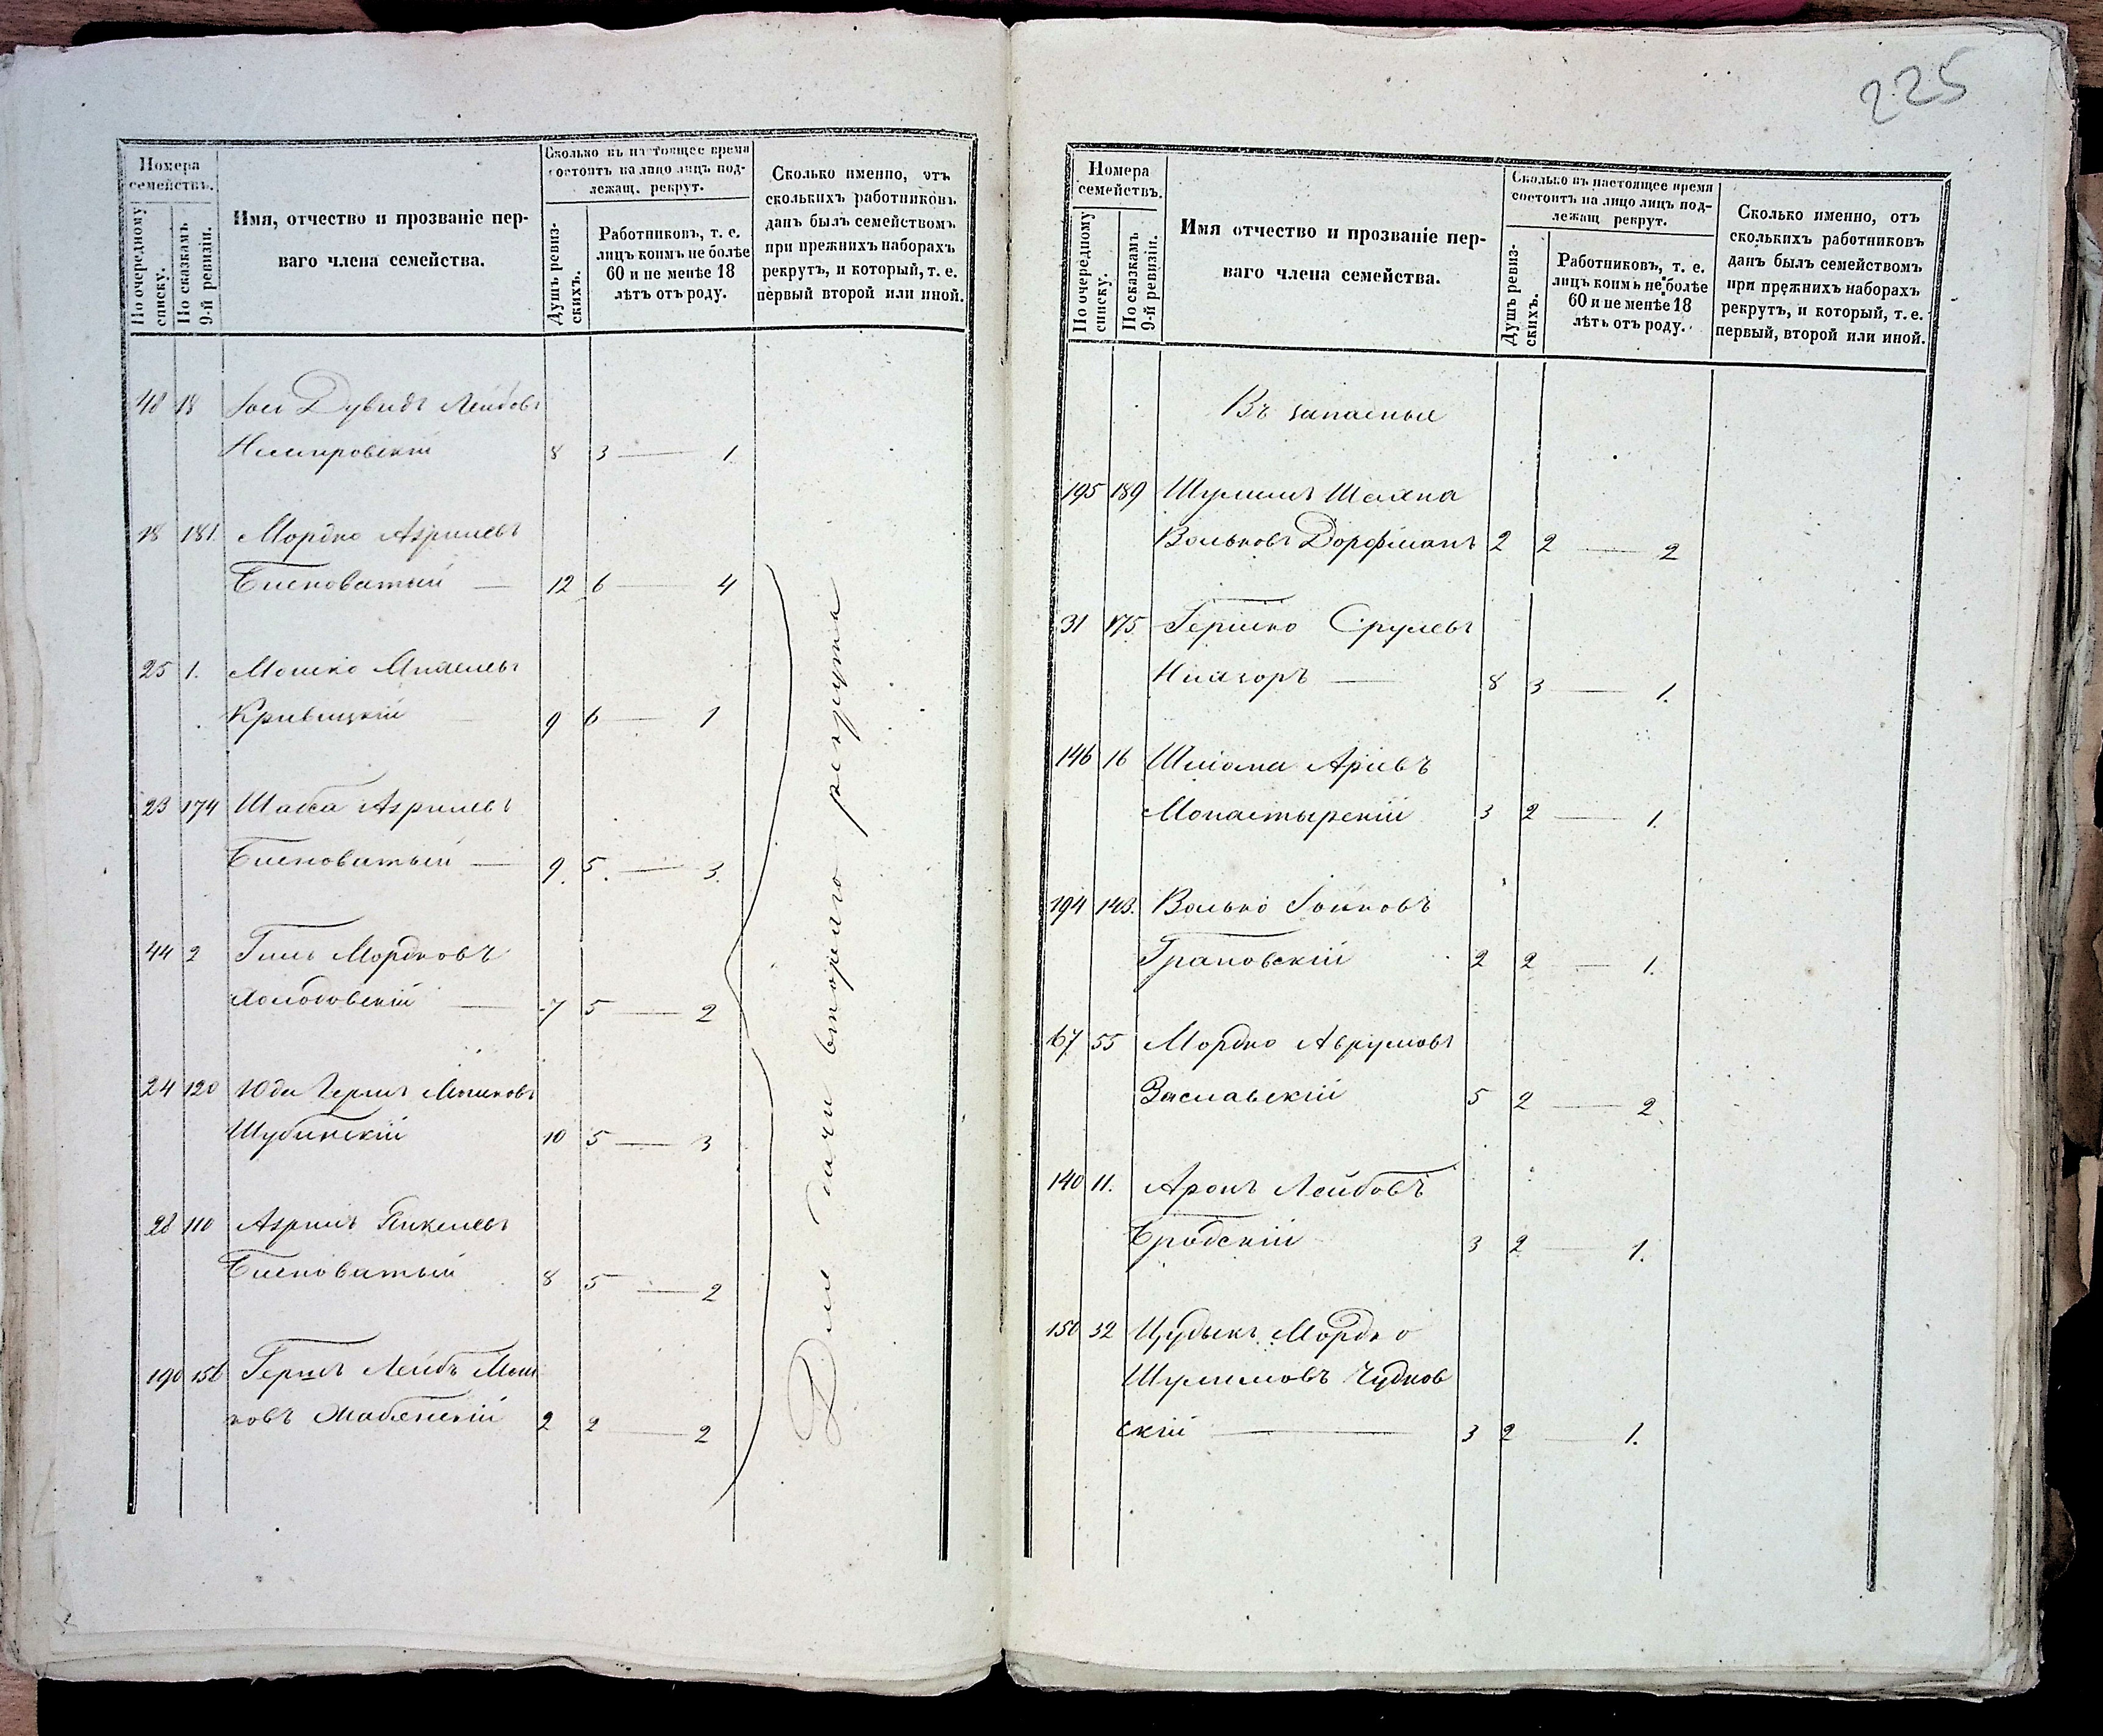 Номера семействъ.
По очередному списку.
По сказкамъ 9-й ревизіи.
Имя, отчество и прозваніе пер-
ваго члена семейства.
Сколько въ настоящее время
состоитъ на лицо лицъ под-
лежащ. рекрут.
Душъ ревиз-
скихъ.
Работниковъ, т. е.
лицъ коимъ не болѣе
60 и не менѣе 18
лѣтъ отъ роду.
Сколько именно, отъ
сколькихъ работниковъ
данъ былъ семействомъ
при прежнихъ наборахъ
рекрутъ, и который, т. е.
первый второй или иной.
48 18 Іось Дувидъ Лейбовъ
Немировскій 8 3 — 1
18 181. Мордко Азрилевъ
Бисноватый — 12 6 — 4
25 1. Мошко
Кривицкій 9 6 — 1
23 174 Шабса Азрилевъ
Бисноватый — 9. 5. — 3.
44 2 Гиль Мордковъ
— 7 5 — 2
24 120 Юда Гершъ Мошковъ
Шубинскій 10 5 — 3
28 110 Азрилъ Янкелевъ
Бисноватый 8 5 — 2
190 Гершъ Лейбъ Мош
ковъ 2 2 — 2
Для дачи второго рекрута
225
Номера
семействъ.
По очередному
списку.
По сказкамъ
9-й ревизіи.
Имя отчество и прозваніе пер-
ваго члена семейства.
Сколько въ настоящее время
состоитъ на лицо лицъ под-
лежащ рекрут.
Душъ ревиз-
скихъ.
Работниковъ, т. е.
лицъ коимъ не болѣе
60 и не менѣе 18
лѣтъ отъ роду.
Сколько именно, отъ
сколькихъ работниковъ
данъ былъ семействомъ
при прежнихъ наборахъ
рекрутъ, и который, т. е.
первый, второй или иной.
Въ запасные
195 189 Шулимъ Шахна
Вольковъ Дорфманъ 2 2 — 2
31 175. Гершко Срулевъ
— 8 3 — 1.
146 16 Шлiома Аріевъ
Монастырскій 3 2 — 1.
194 143. Волько
Грановскій 2 2 — 1.
67 55 Мордко Аврумовъ
Заславскій 5 2 — 2
140 11. Аронъ Лейбовъ
Бродскій 3 2 — 1.
150 32 Цудыкъ Мордко
Шулимовъ Чуднов
скій — 3 2 — 1.